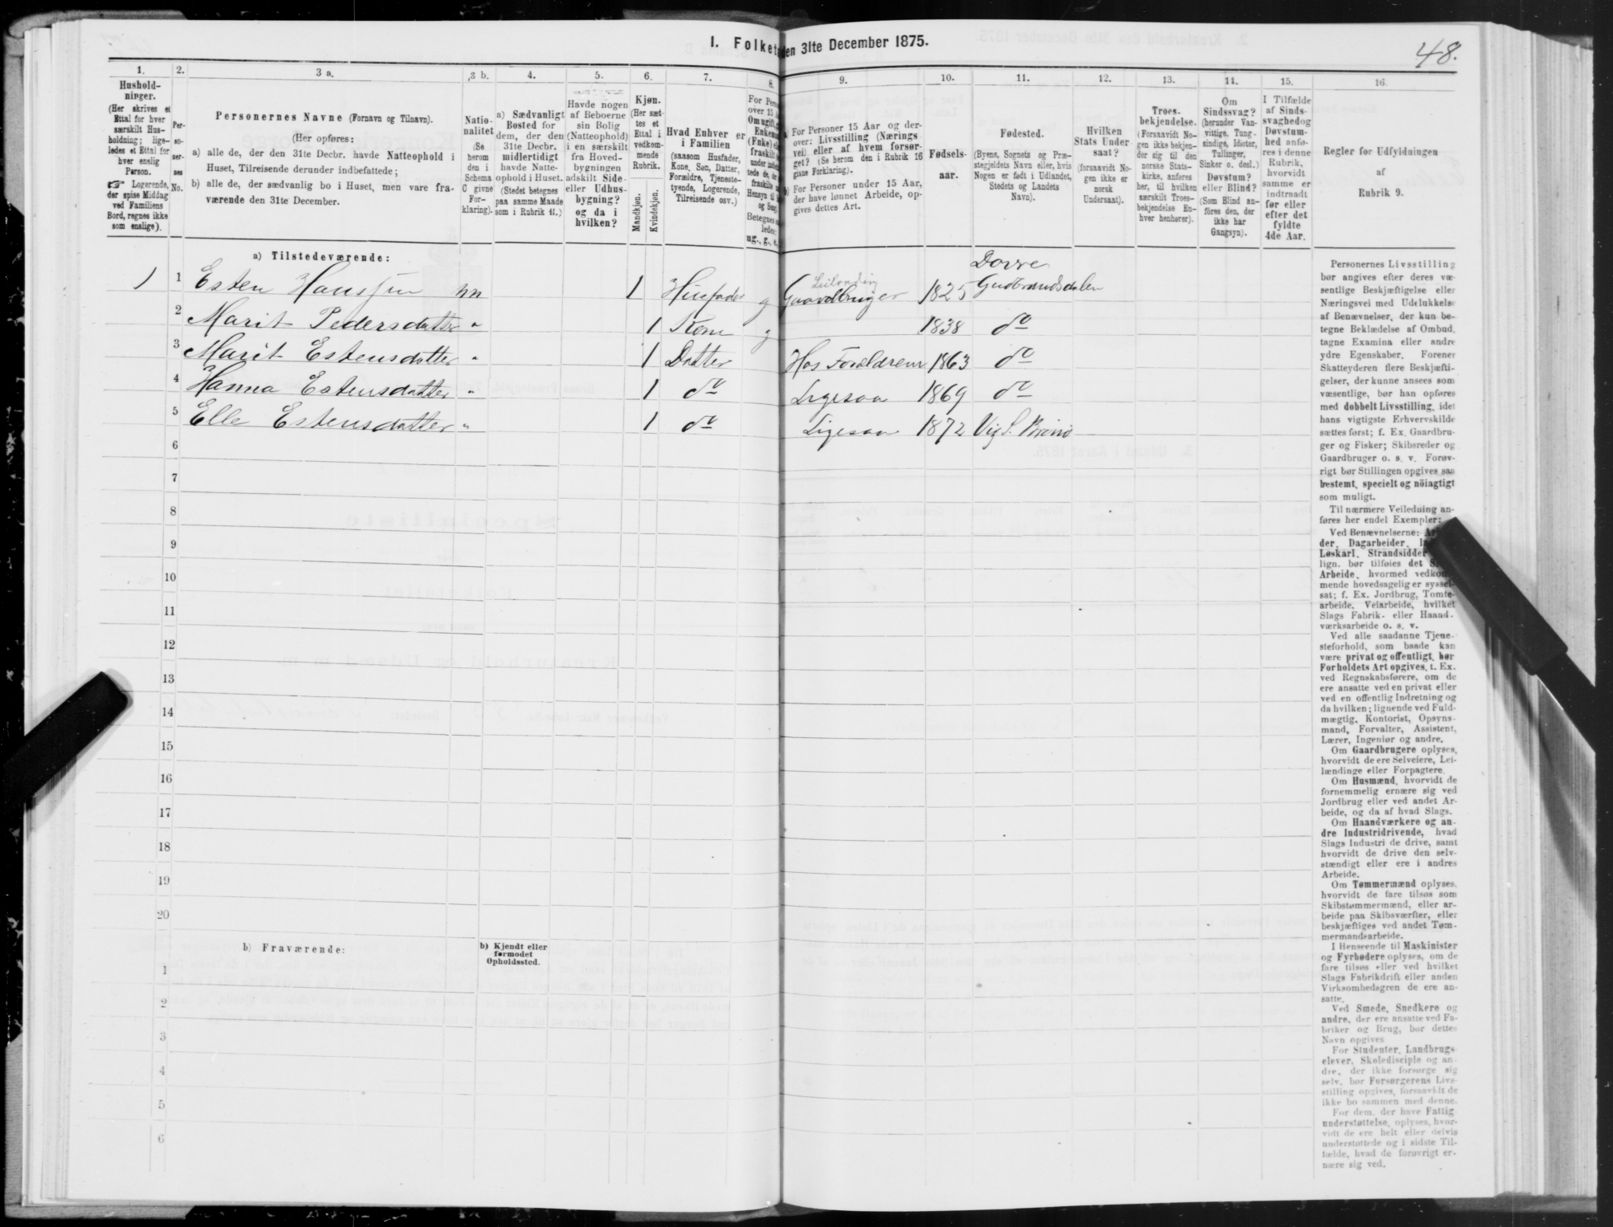 I. Folketa
den 31te December 1875.
48.
1.
2.
3 a.
3 b.
4.
5.
6.
7.
8.
9.
10.
11.
12.
13.
14.
15.
16.
Hushold-
ninger.
(Her skrives et
Ettal for hver
særskilt Hus-
holdning; lige-
ledes et Ettal for
hver enslig
Person.
☞ Logerende,
der spise Middag
ved Familiens
Bord, regnes ikke
som enslige).
Per-
so-
ner-
nes
No.
Personernes Navne (Fornavn og Tilnavn).
(Her opføres:
a) alle de, der den 31te Decbr. havde Natteophold i
Huset, Tilreisende derunder indbefattede;
b) alle de, der sædvanlig bo i Huset, men vare fra-
værende den 31te December.
Natio-
nalitet
(Se
herom
den i
Schema
C givne
For-
klaring).
a) Sædvanligt
Bosted for
dem, der den
31te Decbr.
midlertidigt
havde Natte-
ophold i Huset.
(Stedet betegnes
paa samme Maade
som i Rubrik 11.)
Havde nogen
af Beboerne
sin Bolig
(Natteophold)
i en særskilt
fra Hoved-
bygningen
adskilt Side-
eller Udhus-
bygning?
og da i
hvilken?
Kjøn.
(Her sæt-
tes et
Ettal i
vedkom-
mende
Rubrik.
Mandkjøn.
Kvindekjøn.
Hvad Enhver er
i Familien
(saasom Husfader,
Kone, Søn, Datter,
Forældre, Tjeneste-
tyende, Logerende,
Tilreisende osv.)
For Personer 15 Aar og der-
over: Livsstilling (Nærings-
vei) eller af hvem forsør-
get? (Se herom den i Rubrik 16
givne Forklaring).
For Personer under 15 Aar,
der have lønnet Arbeide, op-
gives dettes Art.
Fødsels-
aar.
Fødested.
(Byens, Sognets og Præ-
stegjeldets Navn eller, hvis
Nogen er født i Udlandet,
Stedets og Landets
Navn).
Hvilken
Stats Under-
saat?
(forsaavidt No-
gen ikke er
norsk
Undersaat).
Troes-
bekjendelse.
(Forsaavidt No-
gen ikke bekjen-
der sig til den
norske Stats-
kirke, anføres
her, til hvilken
særskilt Troes-
bekjendelse En-
hver henhører).
Om
Sindssvag?
(herunder Van-
vittige, Tung-
sindige, Idioter,
Tullinger,
Sinker o. desl.)
Døvstum?
eller Blind?
(Som Blind an-
føres den, der
ikke har
Gangsyn).
I Tilfælde
af Sinds-
svaghed og
Døvstum-
hed anfø-
res i denne
Rubrik,
hvorvidt
samme er
indtraadt
før eller
efter det
fyldte
4de Aar.
Regler for Udfyldningen
af
Rubrik 9.
a) Tilstedeværende:
1 1 Esten Hanssen nn 1 Husfader g Leilænding Gaardbruger 1825 Dovre Gudbrandsdalen
2 Marit Pedersdatter " 1 Kone g 1838 do
3 Marit Estensdatter " 1 Datter Hos Forældrene 1863 do
4 Hanna Estensdatter " 1 do Ligesaa 1869 do
5 Elle Estensdatter " 1 do Ligesaa 1872
6
7
8
9
10
11
12
13
14
15
16
17
18
19
20
b) Fraværende:
b) Kjendt eller
formodet
Opholdssted.
1
2
3
4
5
6
Personernes Livsstilling
bør angives efter deres væ-
sentlige Beskjæftigelse eller
Næringsvei med Udelukkelse
af Benævnelser, der kun be-
tegne Beklædelse af Ombud,
tagne Examina eller andre
ydre Egenskaber. Forener
Skatteyderen flere Beskjæfti-
gelser, der kunne ansees som
væsentlige, bør han opføres
med dobbelt Livsstilling, idet
hans vigtigste Erhvervskilde
sættes først; f. Ex. Gaardbru-
ger og Fisker; Skibsreder og
Gaardbruger o. s. v. Forøv-
rigt bør Stillingen opgives saa
bestemt, specielt og nöiagtigt
som muligt.
Til nærmere Veiledning an-
føres her endel Exempler:
Ved Benævnelserne:
der, Dagarbeider,
Løskarl, Strandsidder
lign. bør tilføies det
Arbeide, hvormed vedkom-
mende hovedsagelig er syssel-
sat; f. Ex. Jordbrug, Tomte-
arbeide, Veiarbeide, hvilket
Slags Fabrik- eller Haand-
værksarbeide o. s. v.
Ved alle saadanne Tjene-
steforhold, som baade kan
være privat og offentligt, bør
Forholdets Art opgives, t. Ex.
ved Regnskabsførere, om de
ere ansatte ved en privat eller
ved en offentlig Indretning og
da hvilken; lignende ved Fuld-
mægtig, Kontorist, Opsyns-
mand, Forvalter, Assistent,
Lærer, Ingeniør og andre.
Om Gaardbrugere oplyses,
hvorvidt de ere Selveiere, Lei-
lændinge eller Forpagtere.
Om Husmænd, hvorvidt de
fornemmelig ernære sig ved
Jordbrug eller ved andet Ar-
beide, og da af hvad Slags.
Om Haandværkere og an-
dre Industridrivende, hvad
Slags Industri de drive, samt
hvorvidt de drive den selv-
stændigt eller ere i andres
Arbeide.
Om Tømmermænd oplyses,
hvorvidt de fare tilsøs som
Skibstømmermænd, eller ar-
beide paa Skibsværfter, eller
beskjæftiges ved andet Tøm-
mermandsarbeide.
I Henseende til Maskinister
og Fyrbødere oplyses, om de
fare tilsøs eller ved hvilket
Slags Fabrikdrift eller anden
Virksomhedsgren de ere an-
satte.
Ved Smede, Snedkere og
andre, der ere ansatte ved Fa-
briker og Brug, bør dettes
Navn opgives
For Studenter, Landbrugs-
elever, Skoledisciple og an-
dre, der ikke forsørge sig
selv, bør Forsørgerens Livs-
stilling opgives, forsaavidt de
ikke bo sammen med denne.
For dem, der have Fattig-
understøttelse, oplyses, hvor-
vidt de ere helt eller delvis
understøttede og i sidste Til-
fælde, hvad de forøvrigt er-
nære sig ved.